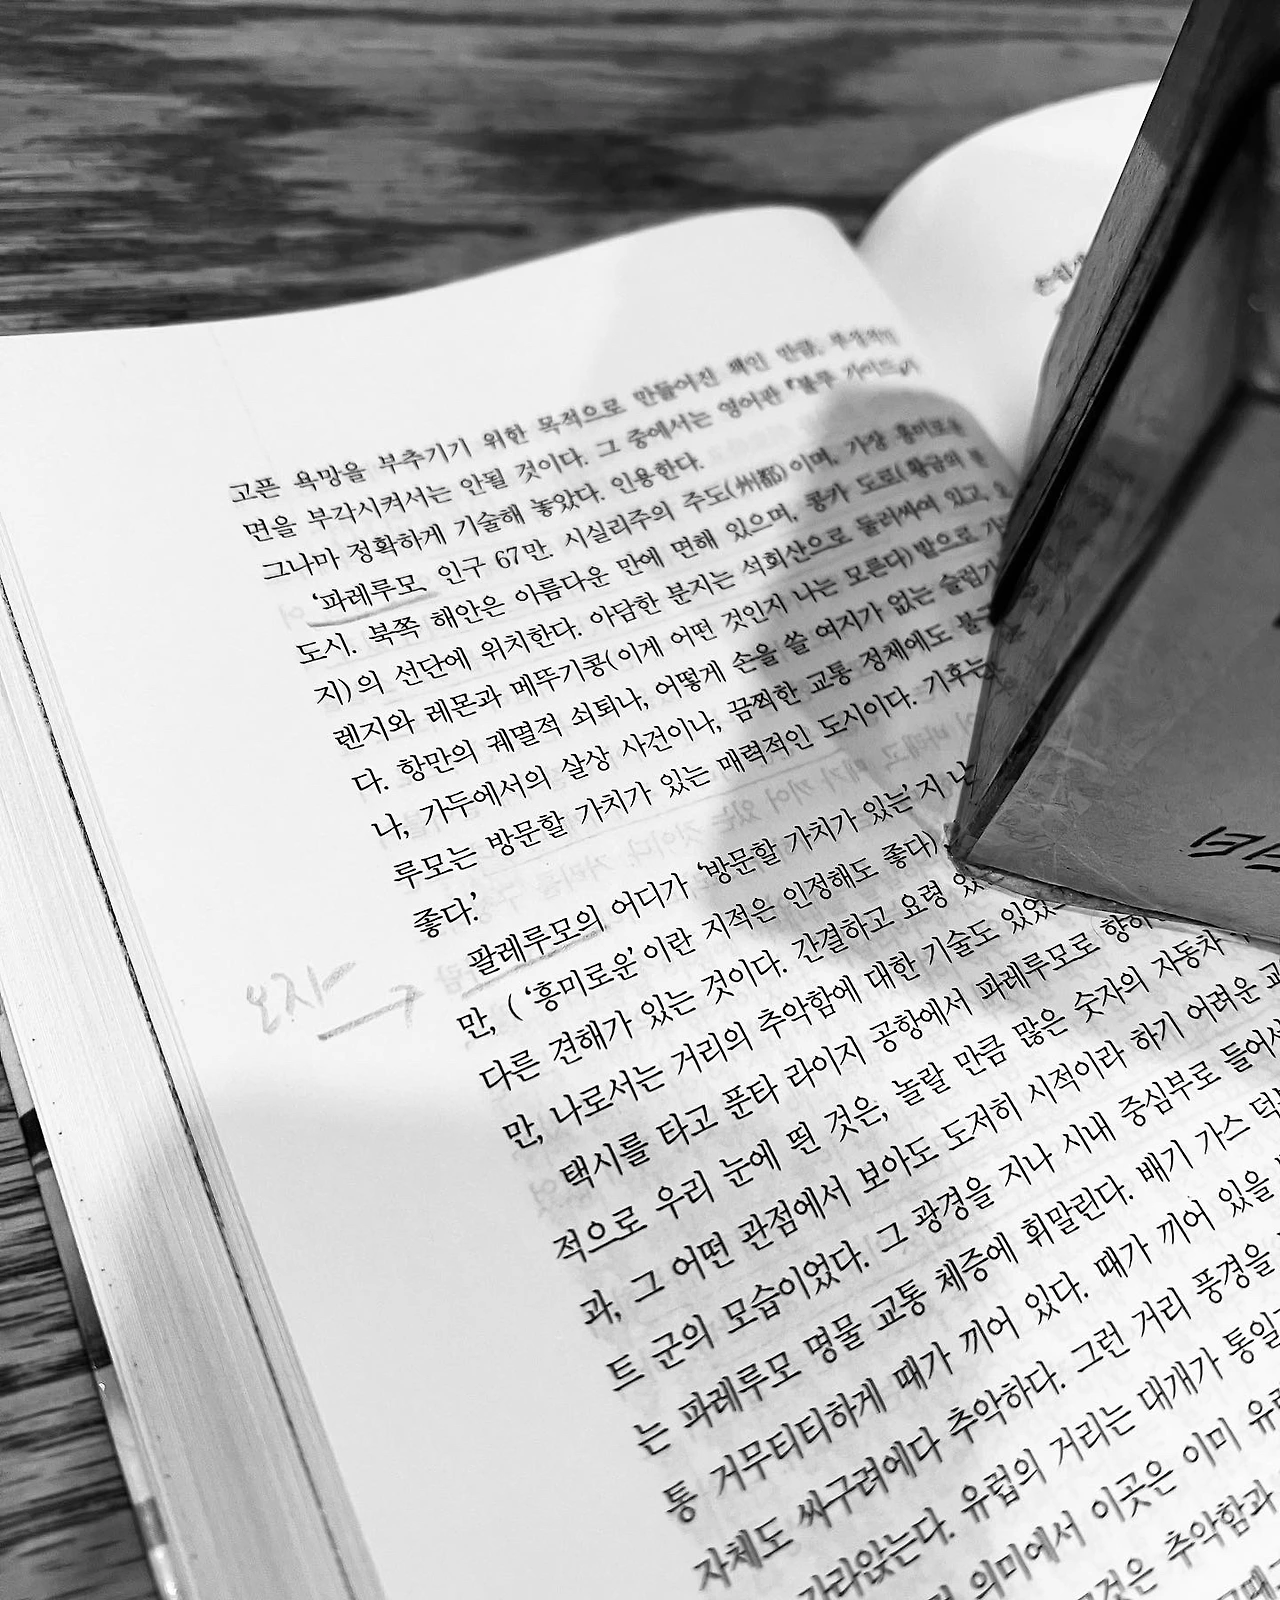 고픈 욕망을 부추기기 위한 목적으로 만들어진 책인 만큼,
면을 부각시켜서는 안될 것이다. 그 중에서는 영어판 『블루 가이드』가
그나마 정확하게 기술해 놓았다. 인용한다.
'파레루모 인구 67만. 시실리주의 주도(州都)이며, 가장 흥미로운
도시. 북쪽 해안은 아름다운 만에 면해 있으며, 콩카 도로(황금의 분
지)의 선단에 위치한다. 아담한 분지는 석회산으로 둘러싸여 있고, 오
렌지와 레몬과 메뚜기콩(이게 어떤 것인지 나는 모른다) 밭으로
다. 항만의 궤멸적 쇠퇴나, 어떻게 손을 쓸 여지가 없는 슬럼가
나, 가두에서의 살상 사건이나, 끔찍한 교통 정체에도 불구
루모는 방문할 가치가 있는 매력적인 도시이다. 기후는
좋다.'
팔레루모의 어디가 '방문할 가치가 있는'지 나
만, ( '흥미로운'이란 지적은 인정해도 좋다)
다른 견해가 있는 것이다. 간결하고 요령
만, 나로서는 거리의 추악함에 대한 기술도 있었
택시를 타고 푼타 라이지 공항에서 파레루모로 향하
적으로 우리 눈에 띈 것은, 놀랄 만큼 많은 숫자의 자동차
과, 그 어떤 관점에서 보아도 도저히 시적이라 하기 어려운
트 군의 모습이었다. 그 광경을 지나 시내 중심부로 들어서
는 파레루모 명물 교통 체증에 휘말린다. 배기 가스
통 거무티티하게 때가 끼어 있다. 때가 끼어 있을
자체도 싸구려에다 추악하다. 그런 거리 풍경을
가라앉는다. 유럽의 거리는 대개가 통일
의미에서 이곳은 이미
추악함과
오자